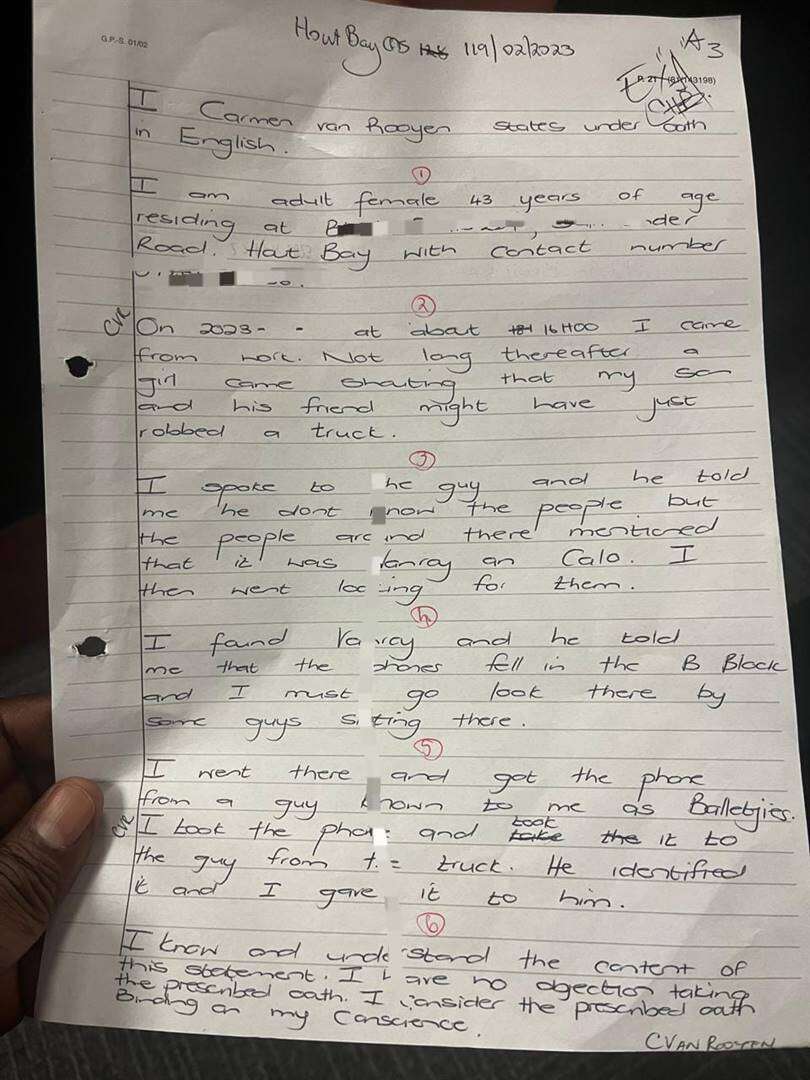 G.P.-S. 01/02
Hout Bay CAS 119/02/2023
A3
I Carmen van Rooyen states under oath
in English.
1
I am adult female 43 years of age
residing at
Road. Hout Bay with contact number
2
CVR
On 2023- - at about 16H00 I came
from work. Not long thereafter a
girl came shouting that my son
and his friend might have just
robbed a truck.
3
I spoke to he guy and he told
me he dont now the people but
the people aro nd there mentioned
that it was anray an Calo. I
then went loo ing for them.
4
I found Va ray and he told
me that the phones fell in the B Block
and I must go look there by
some guys si ting there.
5
I went there and got the phone
from a guy known to me as Balletjies.
CVR
I took the phon and took it to
the guy from t truck. He identified
it and I gave it to him.
6
I know and unde stand the content of
this statement. I have no objection taking
the prescribed oath. I consider the prescribed oath
Binding on my conscience.
C VAN ROOYEN